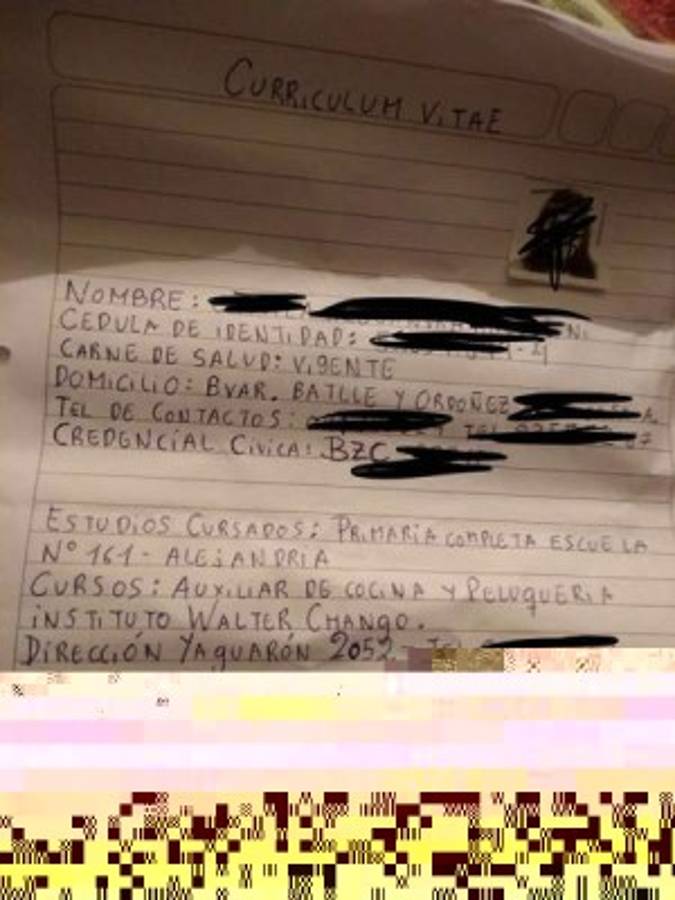 CURRICULUM VITAE
NOMBRE:
CEDULA DE IDENTIDAD:
CARNE DE SALUD: VIGENTE
DOMICILIO: BVAR. BATLLE Y ORDOÑEZ
TEL DE CONTACTOS:
CREDENCIAL CIVICA: BZC
ESTUDIOS CURSADOS: PRIMARIA COMPLETA ESCUELA
Nº 161 - ALEJANDRIA
CURSOS: AUXILIAR DE COCINA Y PELUQUERIA
INSTITUTO WALTER CHANGO.
DIRECCIÓN YAGUARÓN 2052.